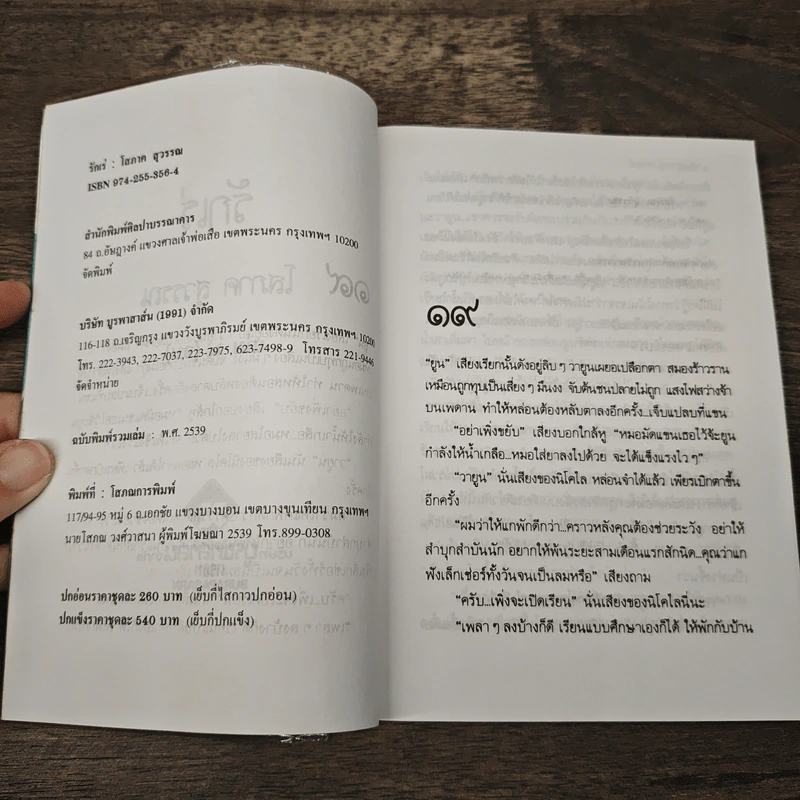 รักเร่ : โสภาค สุวรรณ
ISBN 974-255-356-4
สำนักพิมพ์ศิลปาบรรณาคาร
84 ถ.อัษฎางค์ แขวงศาลเจ้าพ่อเสือ เขตพระนคร กรุงเทพฯ 10200
จัดพิมพ์
บริษัท บูรพาสาส์น (1991) จำกัด
116-118 ถ.เจริญกรุง แขวงวังบูรพาภิรมย์ เขตพระนคร กรุงเทพฯ 10200
โทร. 222-3943, 222-7037, 223-7975, 623-7498-9 โทรสาร 221-9446
จัดจำหน่าย
ฉบับพิมพ์รวมเล่ม : พ.ศ. 2539
พิมพ์ที่ : โสภณการพิมพ์
117/94-95 หมู่ 6 ถ.เอกชัย แขวงบางบอน เขตบางขุนเทียน กรุงเทพฯ
นายโสภณ วงศ์วาสนา ผู้พิมพ์โฆษณา 2539 โทร.899-0308
ปกอ่อนราคาชุดละ 260 บาท (เย็บกี่ไสกาวปกอ่อน)
ปกแข็งราคาชุดละ 540 บาท (เย็บกี่ปกแข็ง)
๑๙
“ยูน” เสียงเรียกนั้นดังอยู่ลิบ ๆ วายูนเผยอเปลือกตา สมองร้าวราน
เหมือนถูกทุบเป็นเสี่ยง ๆ มึนงง จับต้นชนปลายไม่ถูก แสงไฟสว่างจ้า
บนเพดาน ทำให้หล่อนต้องหลับตาลงอีกครั้ง...เจ็บแปลบที่แขน
“อย่าเพิ่งขยับ” เสียงบอกใกล้หู “หมอมัดแขนเธอไว้จ้ะยูน
กำลังให้น้ำเกลือ...หมอใส่ยาลงไปด้วย จะได้แข็งแรงไว ๆ”
“วายูน” นั่นเสียงของนิโคไล หล่อนจำได้แล้ว เพียรเบิกตาขึ้น
อีกครั้ง
“ผมว่าให้แกพักดีกว่า...คราวหลังคุณต้องช่วยระวัง อย่าให้
สำบุกสำบันนัก อยากให้พ้นระยะสามเดือนแรกสักนิด...คุณว่าแก
ฟังเล็กเช่อร์ทั้งวันจนเป็นลมหรือ” เสียงถาม
“ครับ...เพิ่งจะเปิดเรียน” นั่นเสียงของนิโคไลนี่นะ
“เพลา ๆ ลงบ้างก็ดี เรียนแบบศึกษาเองก็ได้ ให้พักกับบ้าน